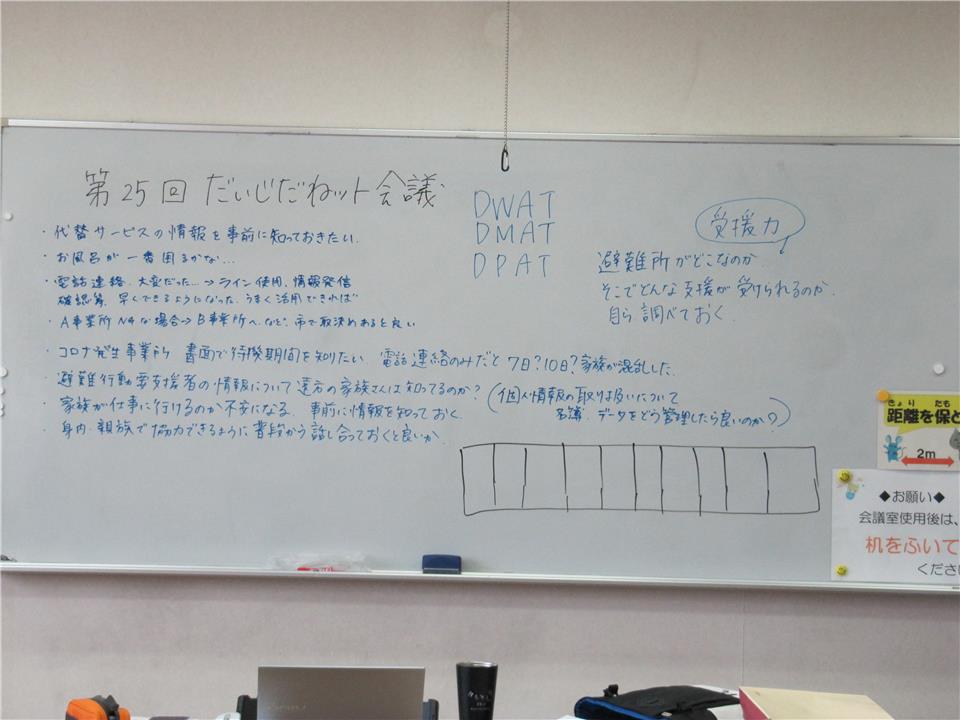 第25回 だいじだねット会議
・代替サービスの情報を事前に知っておきたい.
・お風呂が一番困るかな...
・電話連絡.大変だった...→ライン使用.情報発信
確認等.早くできるようになった.うまく活用できれば
・A事業所NGな場合→B事業所へ.など.市で取決めあると良い
・コロナ発生事業所 書面で待機期間を知りたい 電話連絡のみだと 7日?10日?家族が混乱した.
・避難行動要支援者の情報について遠方の家族さんは知ってるのか?
(個人情報の取り扱いについて
名簿.データをどう管理したら良いのか?)
・家族が仕事に行けるのか不安になる. 事前に情報を知っておく
・身内・親族で協力できるように普段から話し合っておくと良いか.
DWAT
DMAT
DPAT
受援力
避難所がどこなのか.
そこでどんな支援が受けられるのか.
自ら調べておく.
きょり たも
距離を保
2m
◆お願い◆
会議室使用後は、
机をふいて
くださ